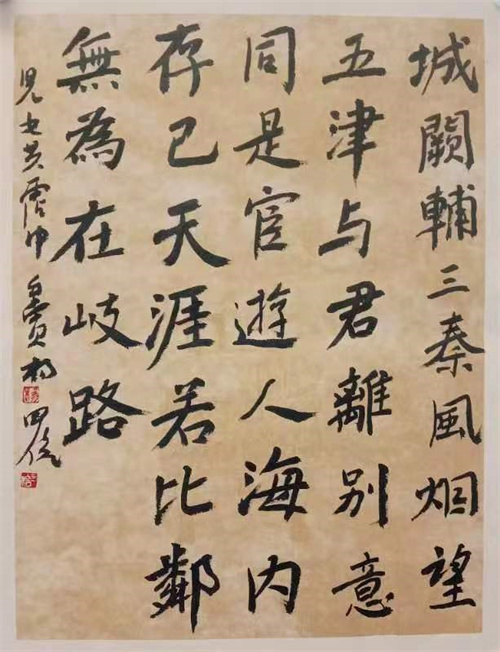 城闕輔三秦風烟望
五津与君離別意
同是宦遊人海内
存已天涯若比鄰
無為在岐路
児女共霑巾